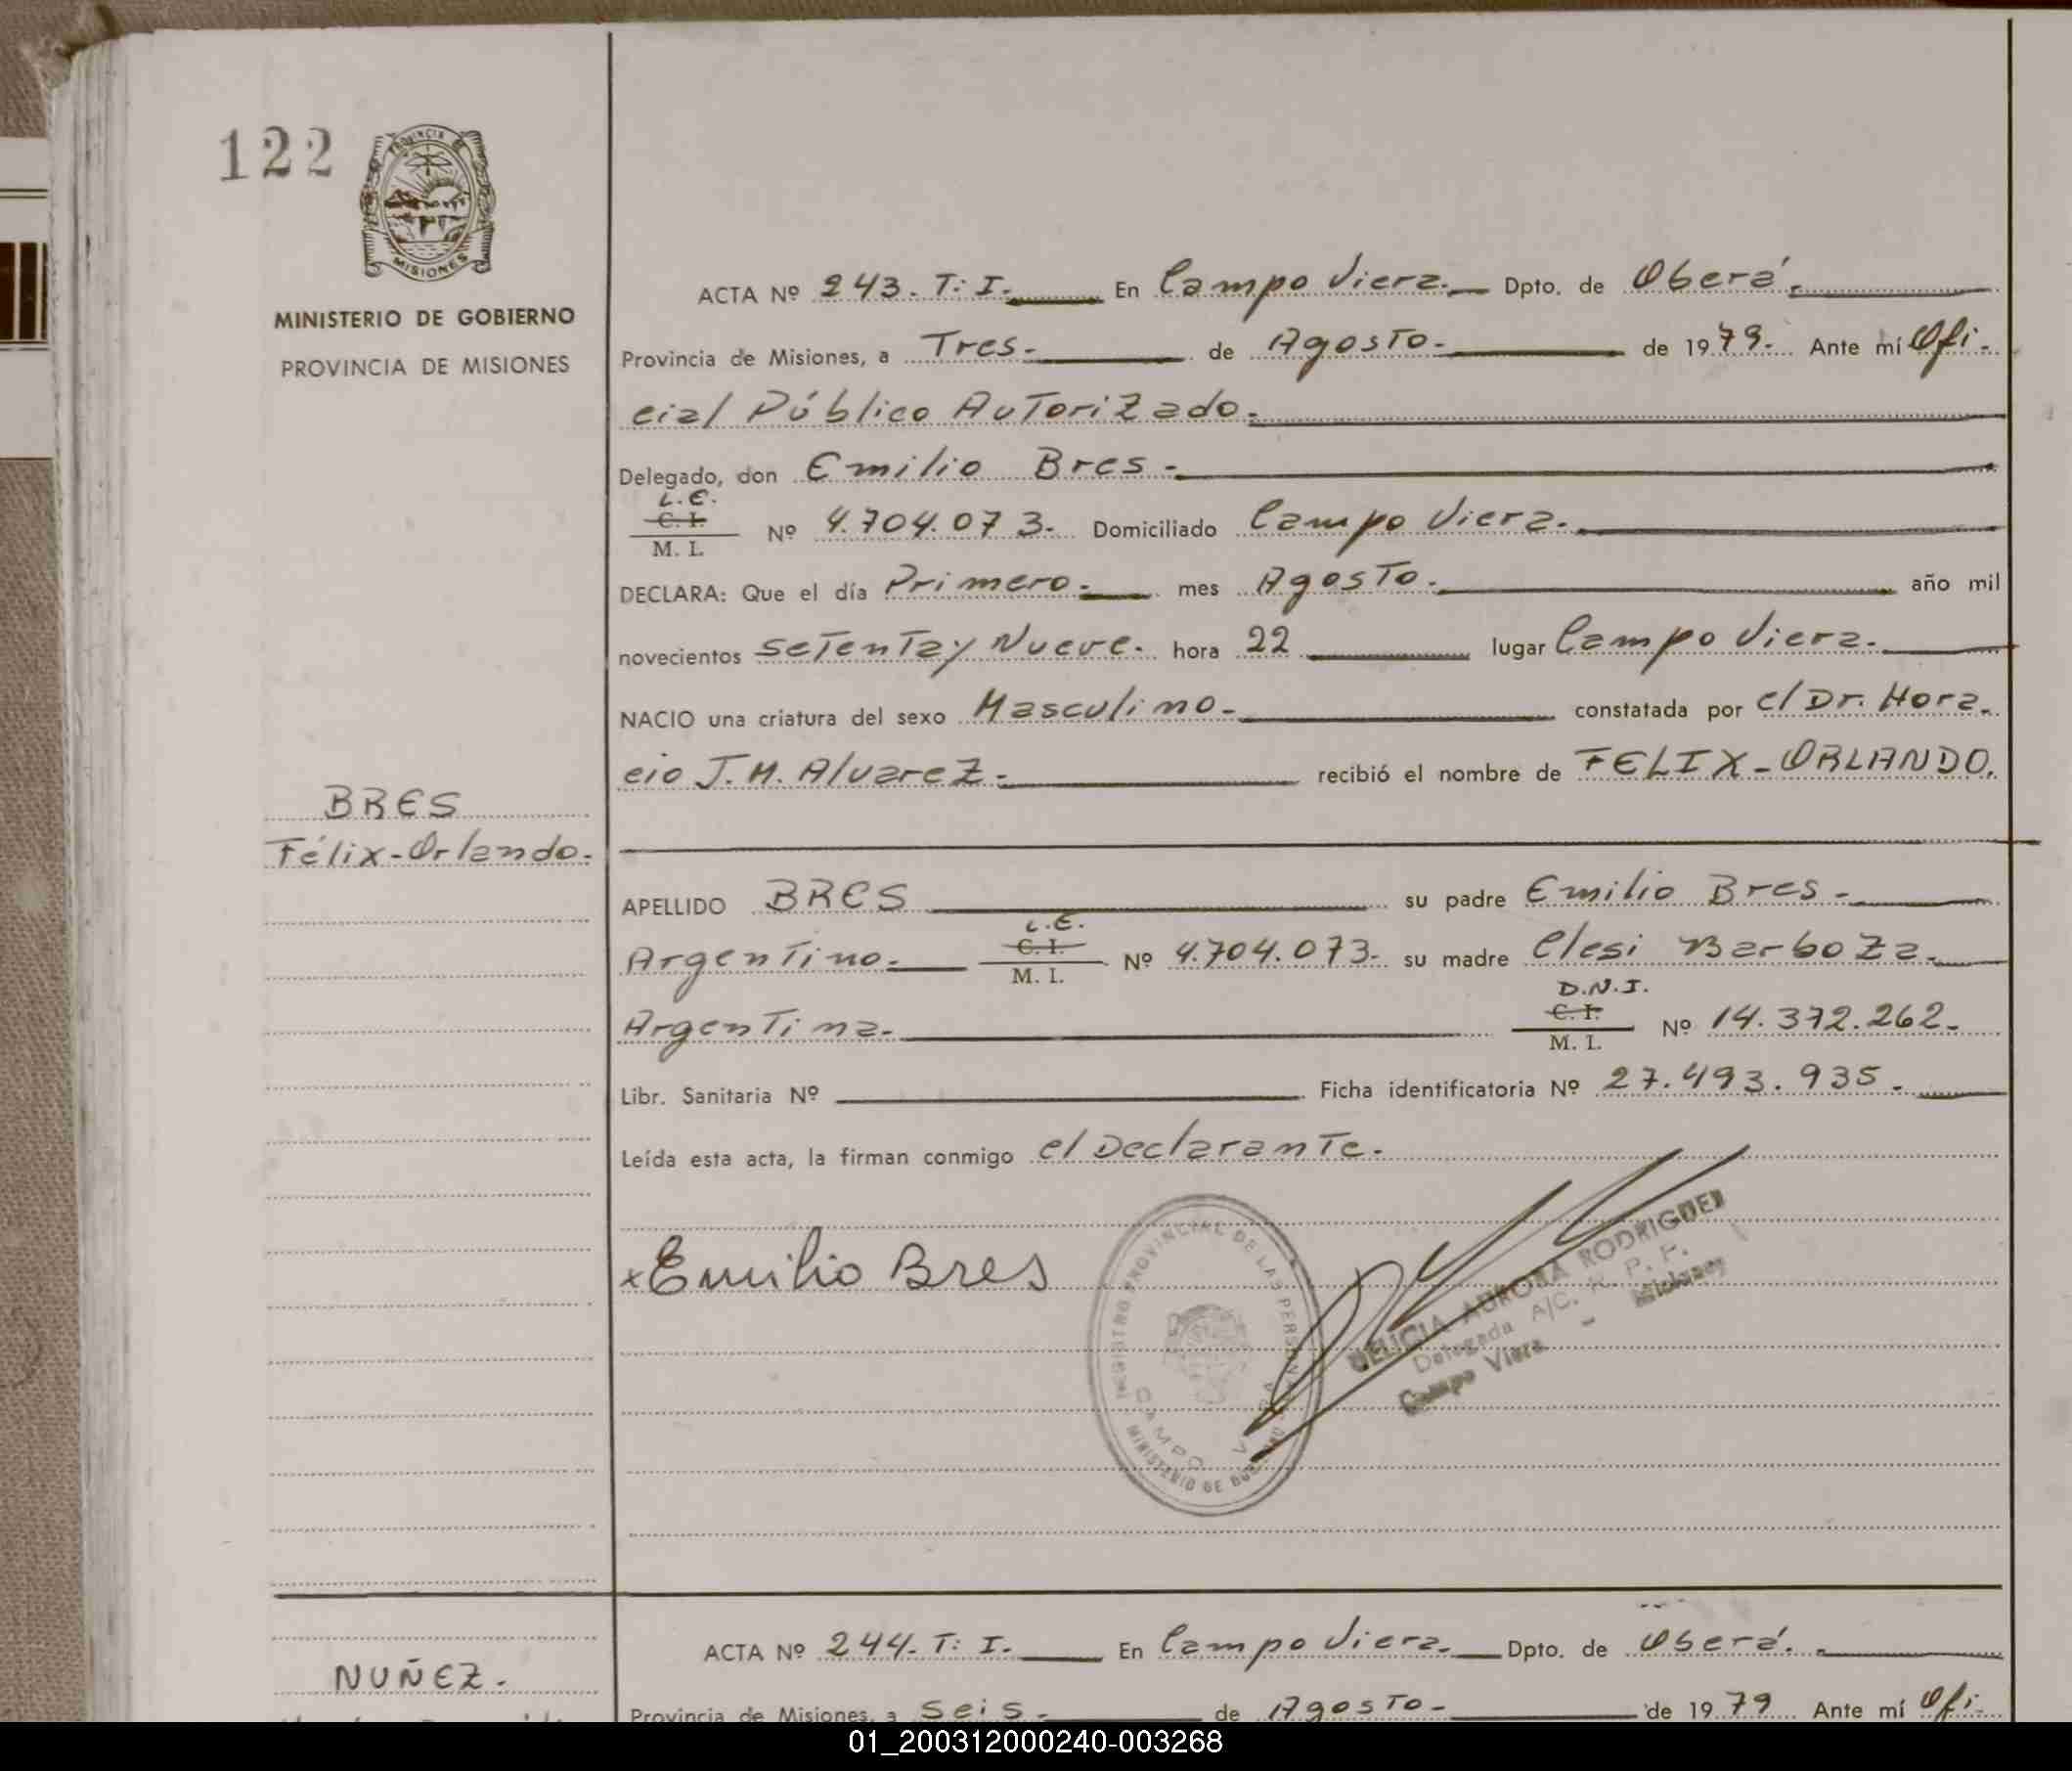 122
PROVINCIA DE
MISIONES
MINISTERIO DE GOBIERNO
PROVINCIA DE MISIONES
ACTA Nº 243. T: I. En Campo Viera. Dpto. de Oberá.
Provincia de Misiones, a Tres. de Agosto. de 1979. Ante mí Ofi-
cial Público Autorizado.
Delegado, don Emilio Bres.
L.E.
C. I.
M. I.
Nº 4.704.073. Domiciliado Campo Viera.
DECLARA: Que el día Primero. mes Agosto. año mil
novecientos setenta y Nueve. hora 22 lugar Campo Viera.
NACIO una criatura del sexo Masculino. constatada por el Dr. Hora-
cio J. M. Alvarez. recibió el nombre de FELIX-ORLANDO.
BRES
Félix-Orlando.
APELLIDO BRES su padre Emilio Bres.
L.E.
Argentino. C. I. Nº 4.704.073. su madre Clesi Barboza.
M. I.
D.N.I.
Argentina. C. I. Nº 14.372.262.
M. I.
Libr. Sanitaria Nº Ficha identificatoria Nº 27.493.935.
Leída esta acta, la firman conmigo el Declarante.
x Emilio Bres
REGISTRO PROVINCIAL DE LAS PERSONAS
CAMPO
MINISTERIO DE
DELICIA AURORA RODRIGUEZ
Delegada A/C. R. P. P.
Campo Viera - Misiones
ACTA Nº 244. T: I. En Campo Viera. Dpto. de Oberá.
NUÑEZ.
Provincia de Misiones, a Seis. de Agosto. de 1979 Ante mí Ofi-
01_200312000240-003268